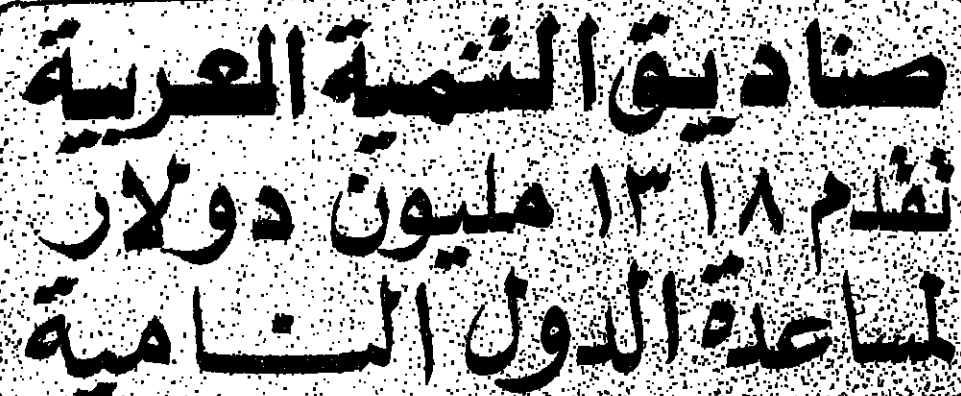 صناديق التنمية العربية
تقدم ١٣١٨ مليون دولار
لمساعدة الدول النامية